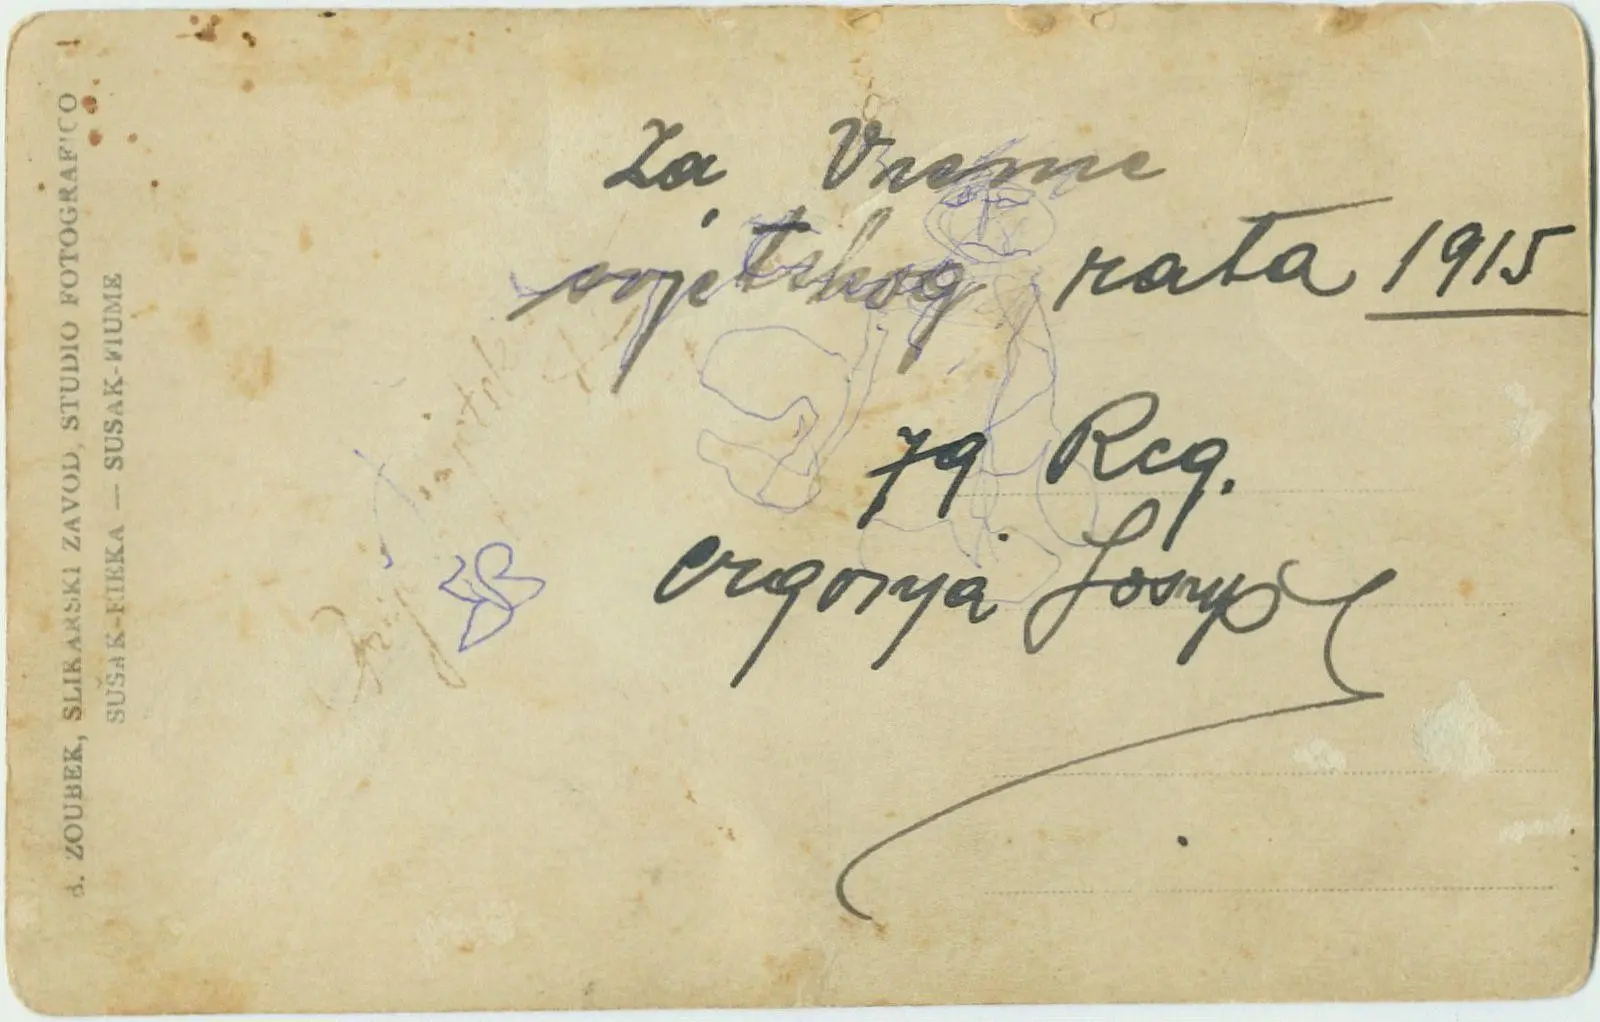 Za Vreme
svjetskog rata 1915
79 Reg.
Josip
ZOUBEK, SLIKARSKI ZAVOD, STUDIO FOTOGRAFICO
SUŠAK-RIEKA — SUSAK-FIUME